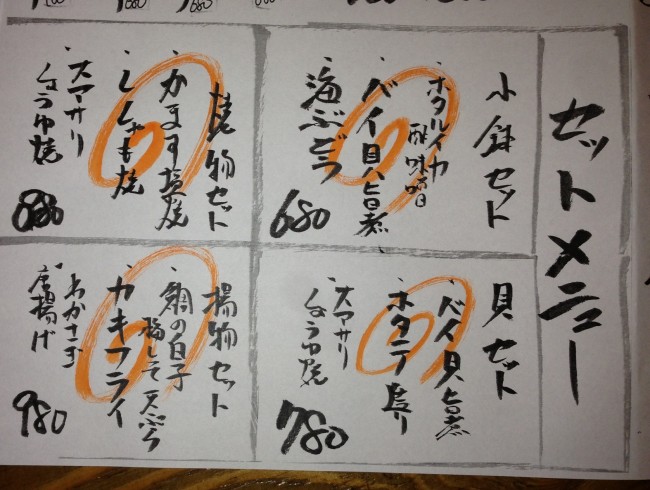 セットメニュー
小鉢セット
・ホタルイカ
酢味噌
・バイ貝旨煮
・海ぶどう
680
焼物セット
・かます塩焼
・ししゃも焼
・大アサリ
しょうゆ焼
880
貝セット
・バイ貝旨煮
・ホタテ造り
・大アサリ
しょうゆ焼
780
揚物セット
・鯛の白子
梅しそ天ぷら
・カキフライ
・わかさぎ
唐揚げ
980